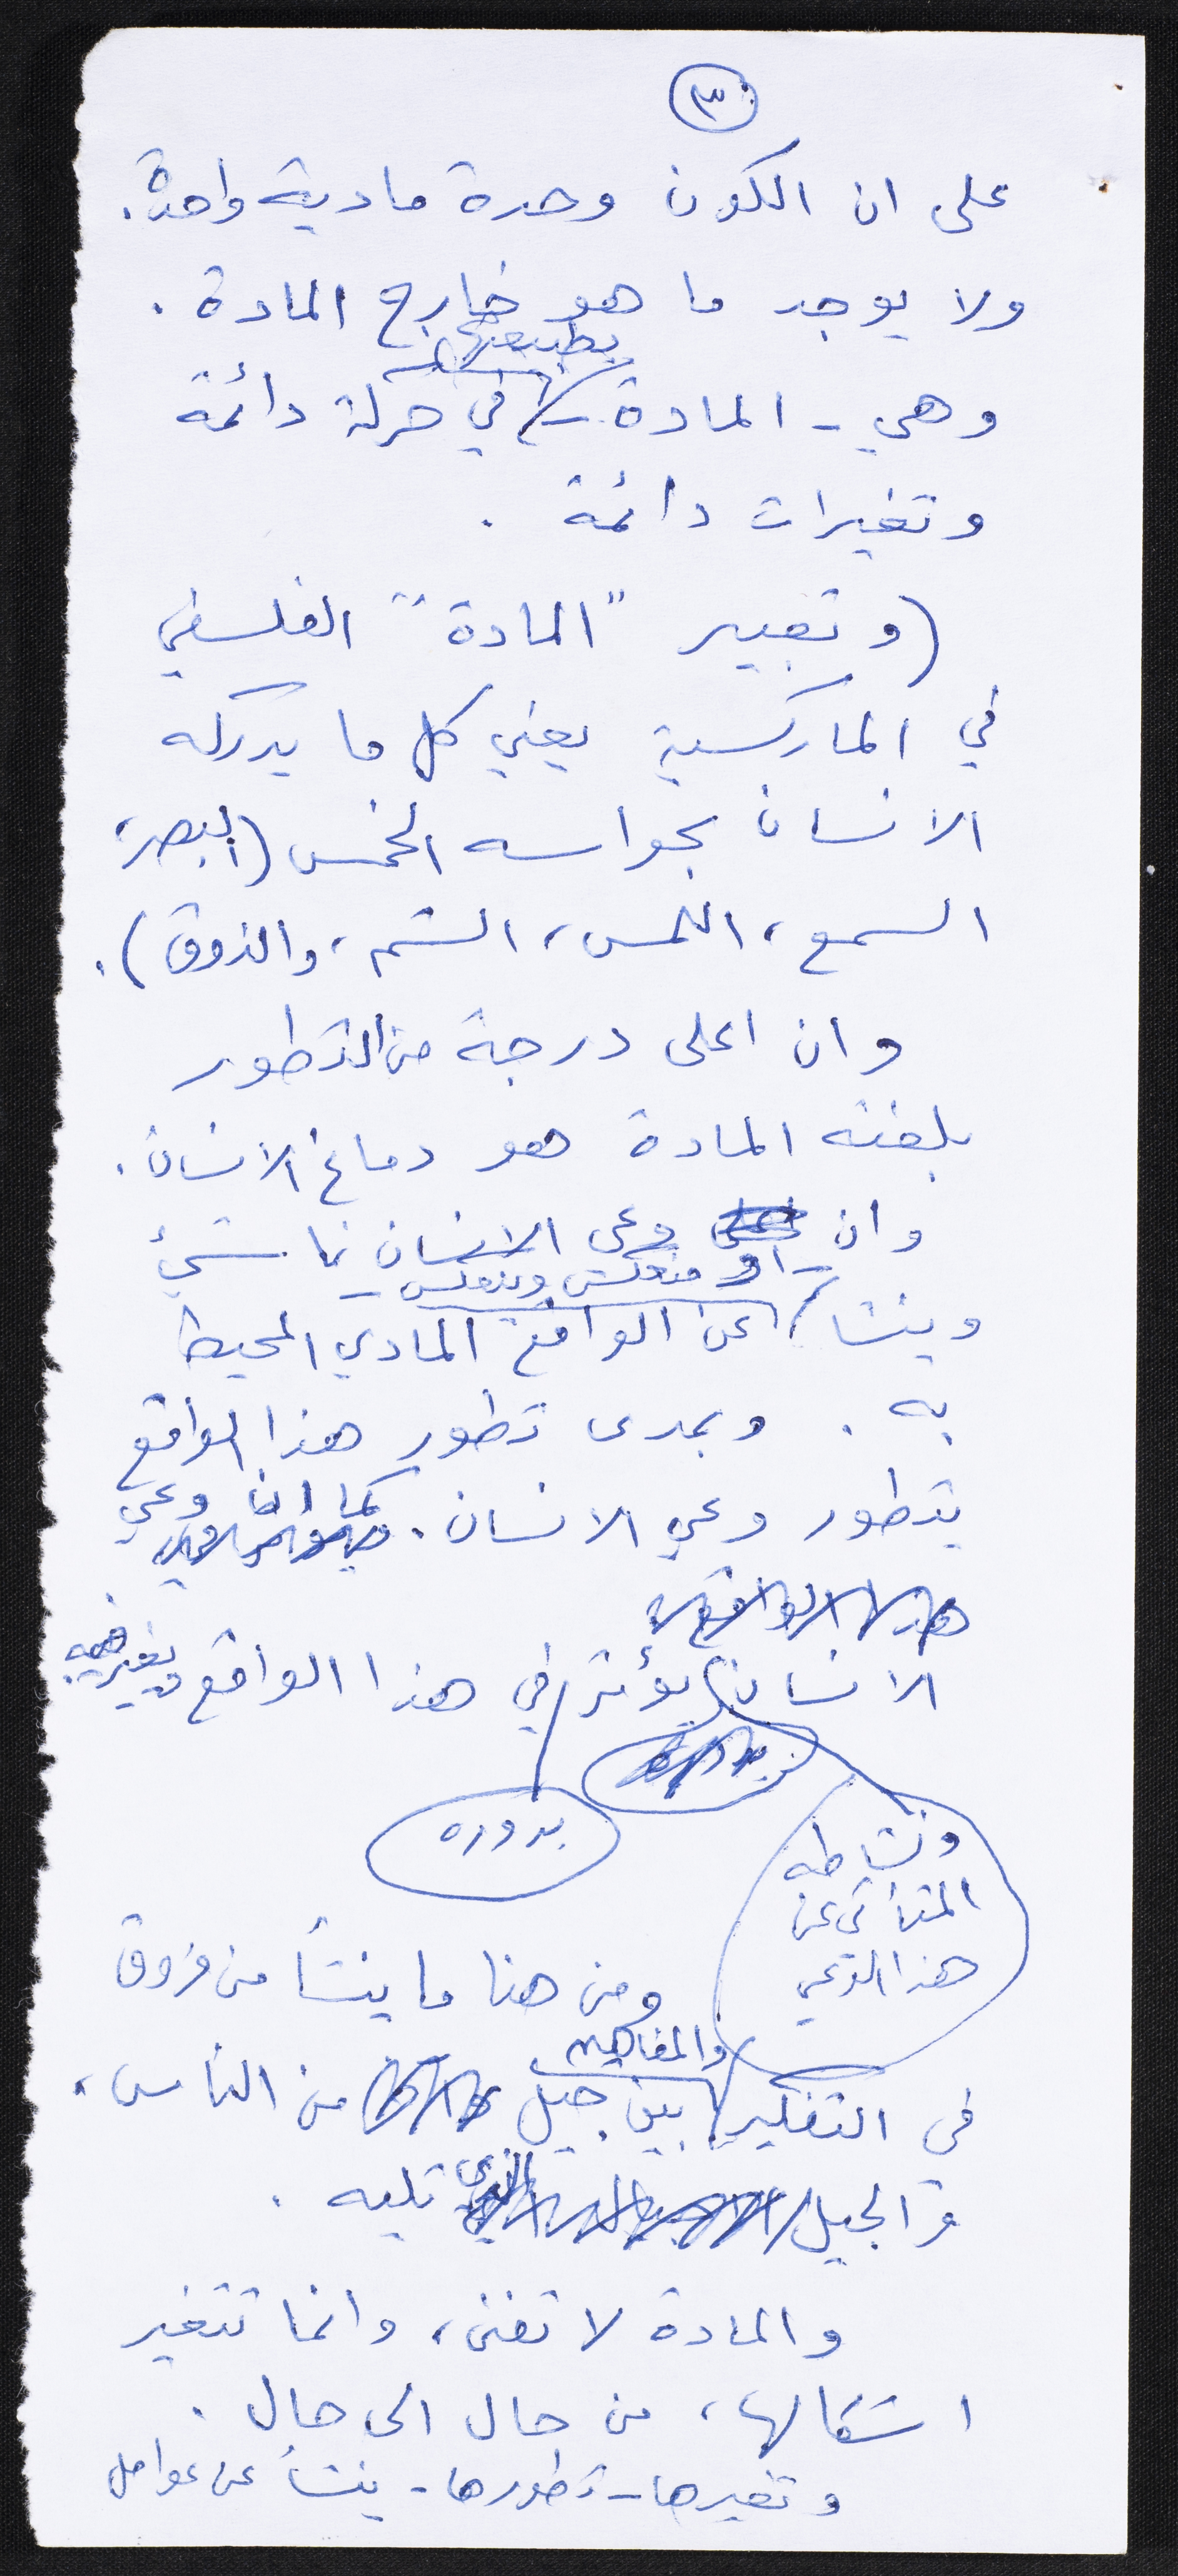 ٣
على ان الكون وحدة مادية واحدة.
ولا يوجد ما هو خارج المادة.
بطبيعتها
وهي - المادة - في حركة دائمة
وتغيرات دائمة.
(وتعبير "المادة" الفلسفي
في الماركسية يعني كل ما يدركه
الانسان بحواسه الخمس (البصر،
السمع، اللمس، الشم، والذوق).
وان اعلى درجة من التطور
بلغته المادة هو دماغ الانسان.
وان وعي الانسان ناشئ
- او منعكس وينعكس -
وينشأ عن الواقع المادي المحيط
به. وبمدى تطور هذا الواقع
يتطور وعي الانسان. كما ان وعي
الانسان يؤثر في هذا الواقع ويغير فيه.
بدوره
ونشاطه
المتأتي عن
هذا الوعي
ومن هنا ما ينشأ من فروق
والمفاهيم
في التفكير بين جيل من الناس،
والجيل الذي تليه.
والمادة لا تفنى، وانما تتغير
اشكالها، من حال الى حال.
وتغيرها - تطورها - ينشأ عن عوامل